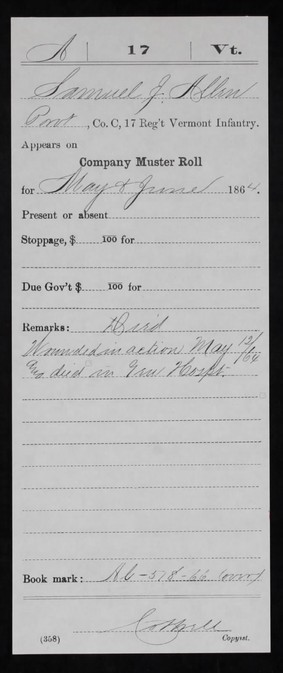 A | 17 | Vt.
Samuel J. Allen
Pvt, Co. C, 17 Reg't Vermont Infantry.
Appears on
Company Muster Roll
for May & June 1864.
Present or absent
Stoppage, $ 100 for
Due Gov't $ 100 for
Remarks: Died
Wounded in action May 12/64
died in Gen Hospt
Book mark: A.C-578-66
(358) Copyist.